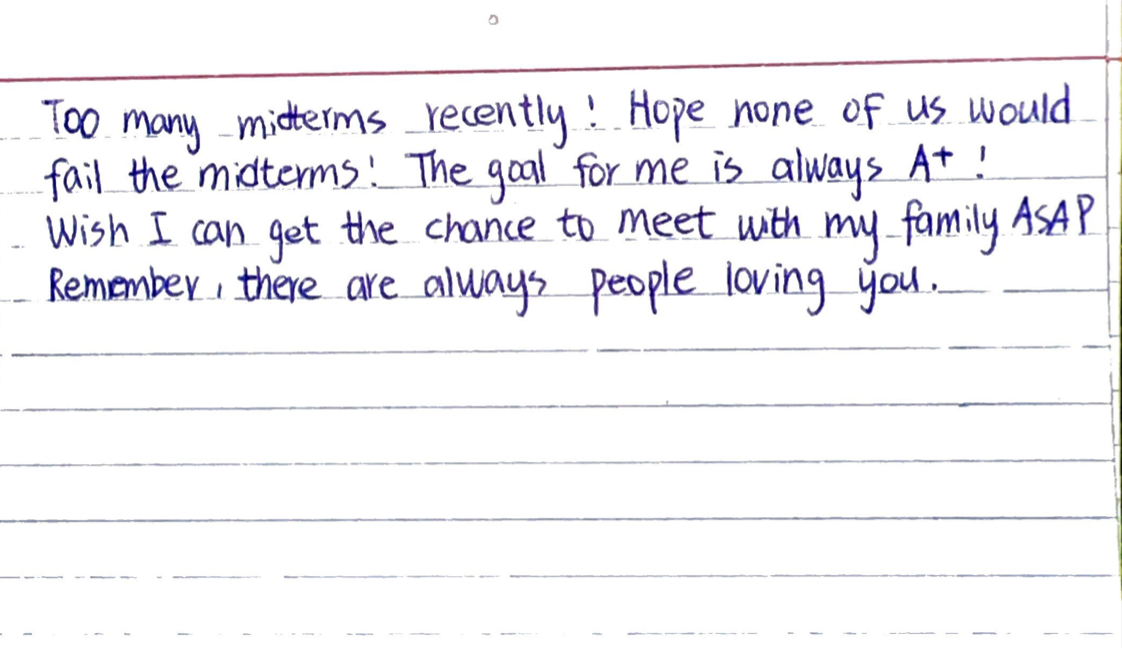 Too many midterms recently! Hope none of us would
fail the midterms! The goal for me is always A+ !
Wish I can get the chance to meet with my family ASAP
Remember, there are always people loving you.